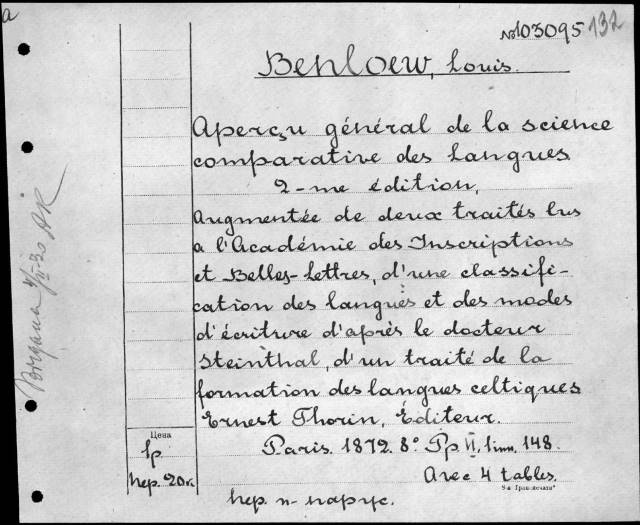 a
№103095 132
Benloew, Louis.
Aperçu général de la science
comparative des langues
2-me édition,
Augmentée de deux traités lus
a l'Académie des Inscriptions
et Belles-Lettres, d'une classifi-
cation des langues et des modes
d'écriture d'après le docteur
Steinthal, d'un traité de la
formation des langues celtiques
Ernest Thorin, Éditeur.
Paris. 1872. 8° Pp II, 1 inn. 148.
Avec 4 tables.
Цена
1р
пер. 20к
пер. п-парус.